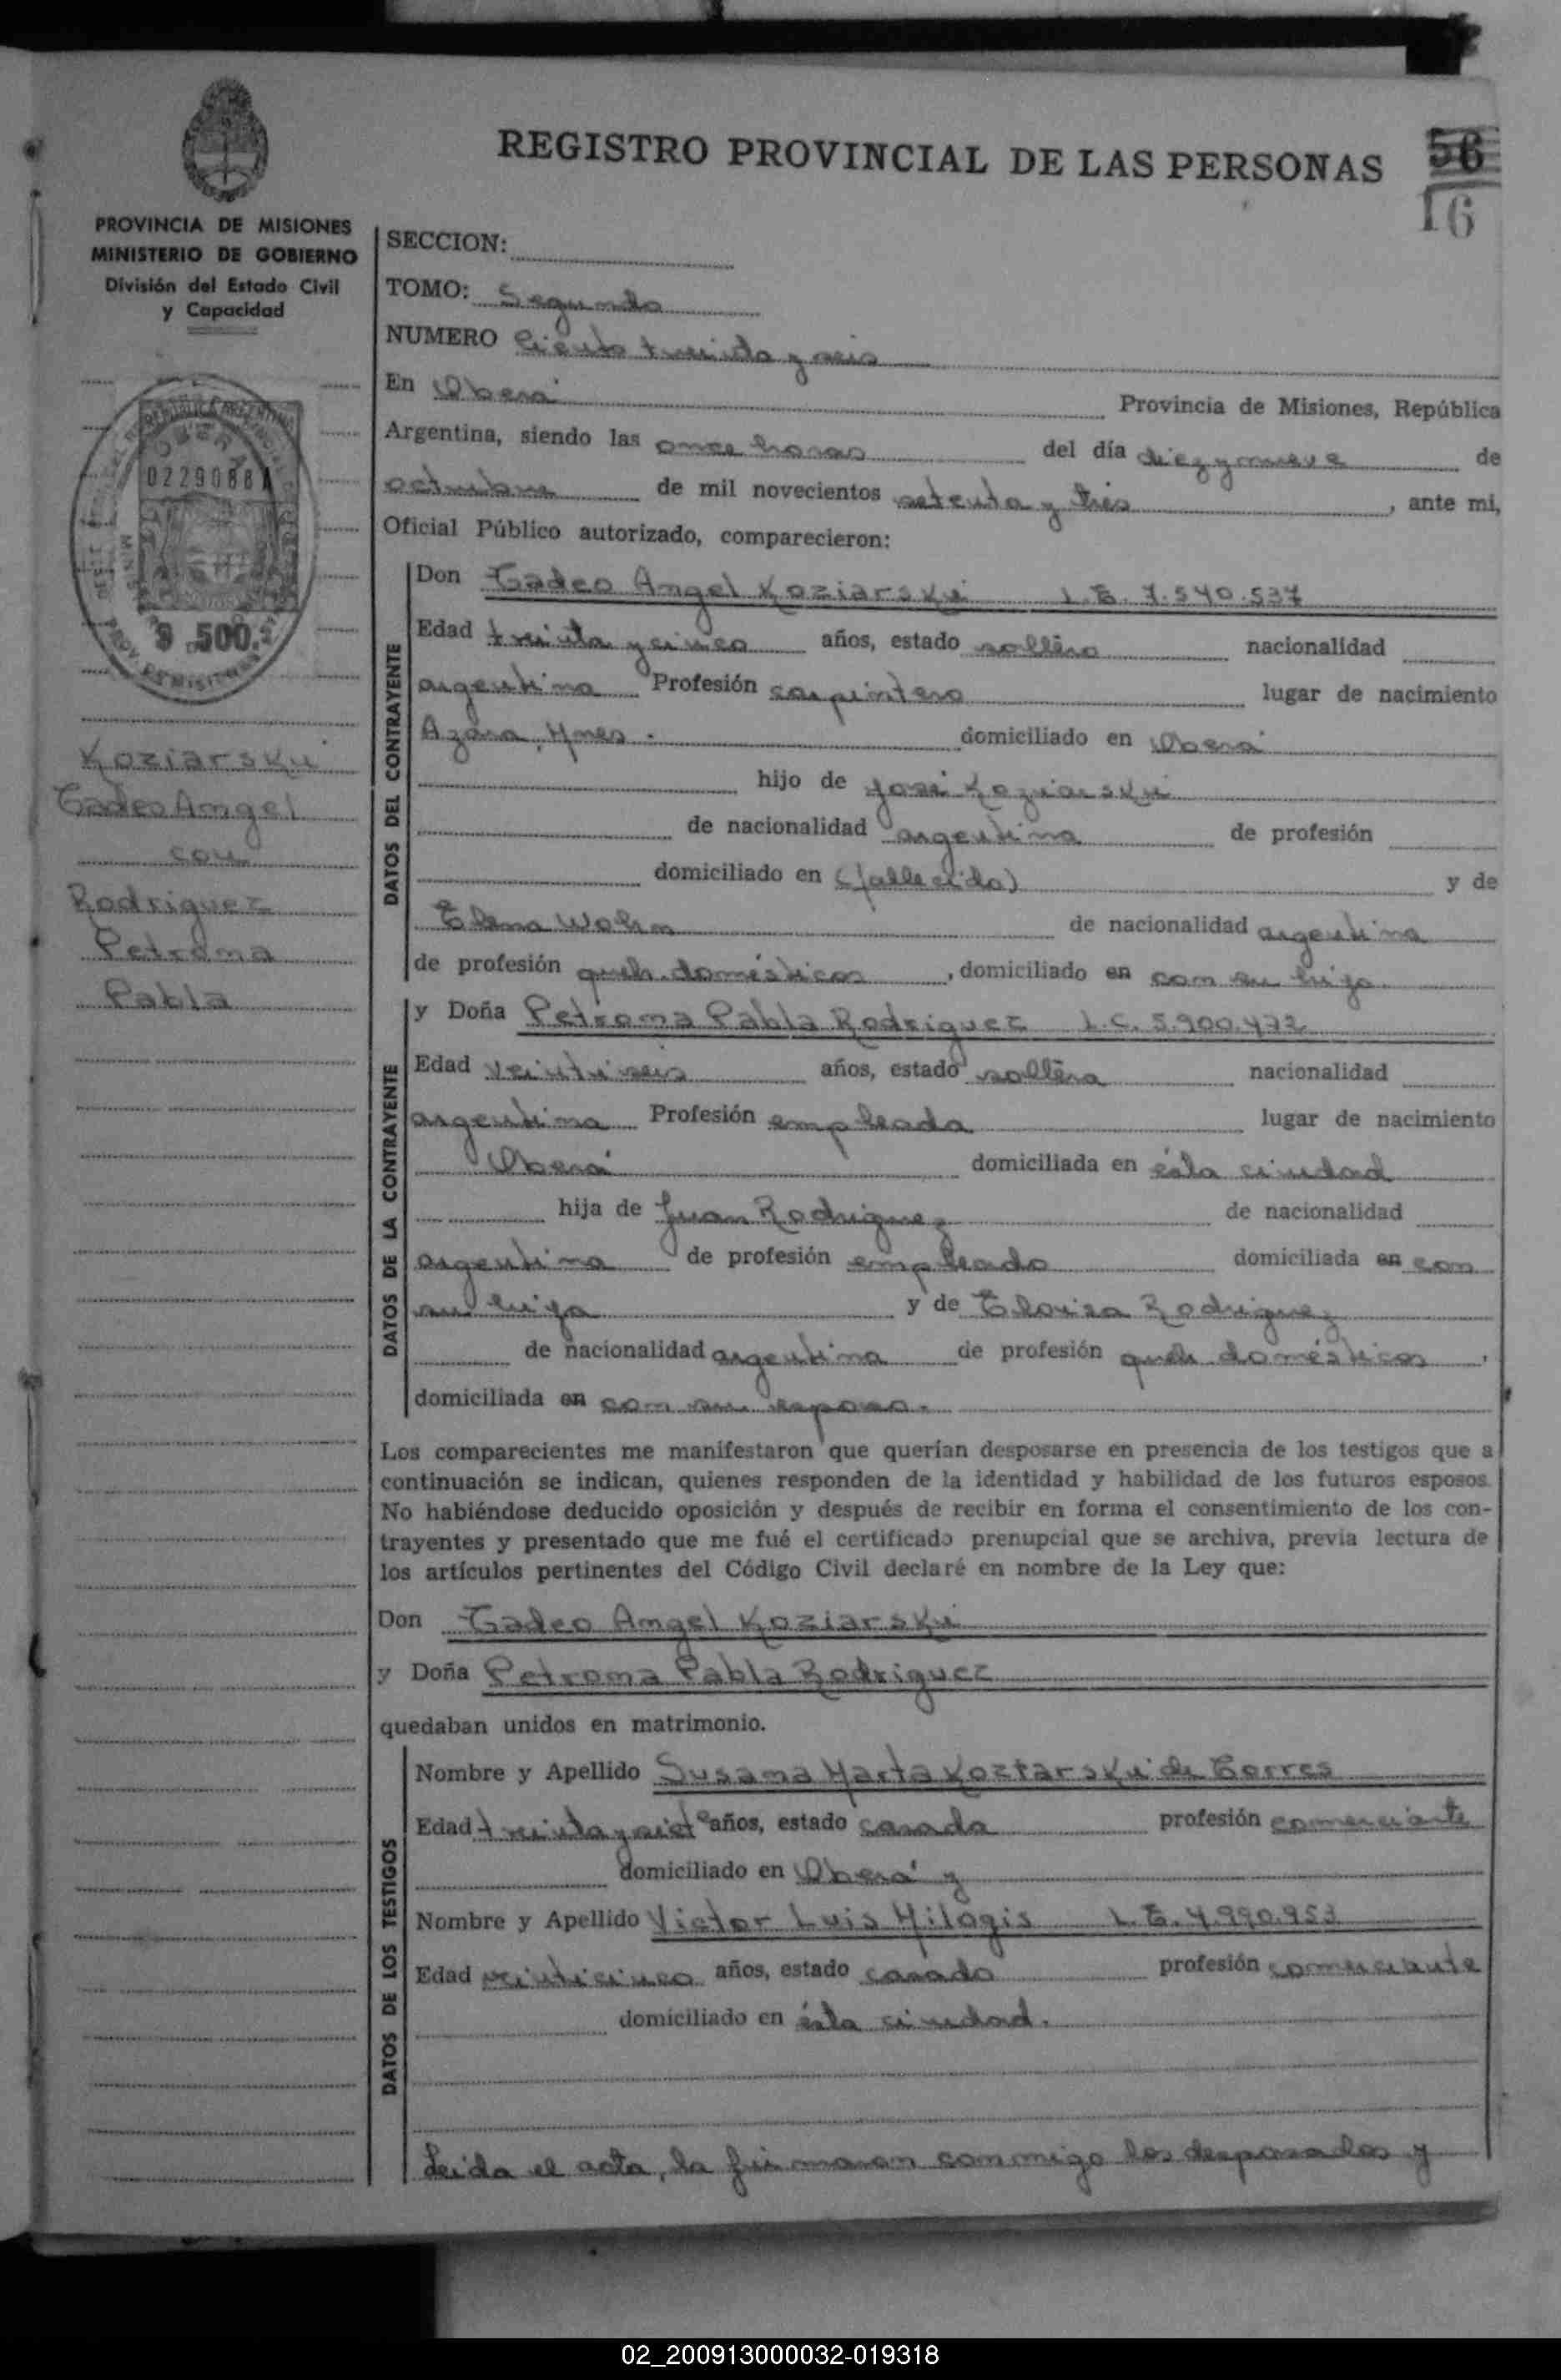 REGISTRO PROVINCIAL DE LAS PERSONAS
56
16
PROVINCIA DE MISIONES
MINISTERIO DE GOBIERNO
División del Estado Civil
y Capacidad
02290884
$ 500.
Koziarski
Tadeo Angel
con
Rodriguez
Petrona
Pabla
SECCION:
TOMO: Segundo
NUMERO Ciento treinta y seis
En Oberá Provincia de Misiones, República
Argentina, siendo las once horas del día diez y nueve de
octubre de mil novecientos setenta y tres, ante mi,
Oficial Público autorizado, comparecieron:
DATOS DEL CONTRAYENTE
Don Tadeo Angel Koziarski L.E. 7.540.537
Edad treinta y cinco años, estado soltero nacionalidad
argentina Profesión carpintero lugar de nacimiento
Azara, Mnes. domiciliado en Oberá
hijo de José Koziarski
de nacionalidad argentina de profesión
domiciliado en (fallecido) y de
Elena Wohn de nacionalidad argentina
de profesión queh. domésticos, domiciliado en con su hijo.
DATOS DE LA CONTRAYENTE
y Doña Petrona Pabla Rodriguez L.C. 5.900.472
Edad veintiseis años, estado soltera nacionalidad
argentina Profesión empleada lugar de nacimiento
Oberá domiciliada en ésta ciudad
hija de Juan Rodriguez de nacionalidad
argentina de profesión empleado domiciliada en con
su hija y de Eloisa Rodriguez
de nacionalidad argentina de profesión queh. domésticos,
domiciliada en con su esposo.
Los comparecientes me manifestaron que querían desposarse en presencia de los testigos que a
continuación se indican, quienes responden de la identidad y habilidad de los futuros esposos.
No habiéndose deducido oposición y después de recibir en forma el consentimiento de los con-
trayentes y presentado que me fué el certificado prenupcial que se archiva, previa lectura de
los artículos pertinentes del Código Civil declaré en nombre de la Ley que:
Don Tadeo Angel Koziarski
y Doña Petrona Pabla Rodriguez
quedaban unidos en matrimonio.
DATOS DE LOS TESTIGOS
Nombre y Apellido Susana Marta Koziarski de Torres
Edad treinta y siete años, estado casada profesión comerciante
domiciliado en Oberá y
Nombre y Apellido Victor Luis Milogis L.E. 4.990.953
Edad veinticinco años, estado casado profesión comerciante
domiciliado en ésta ciudad.
Leida el acta, la firmaron conmigo los desposados y
02_200913000032-019318